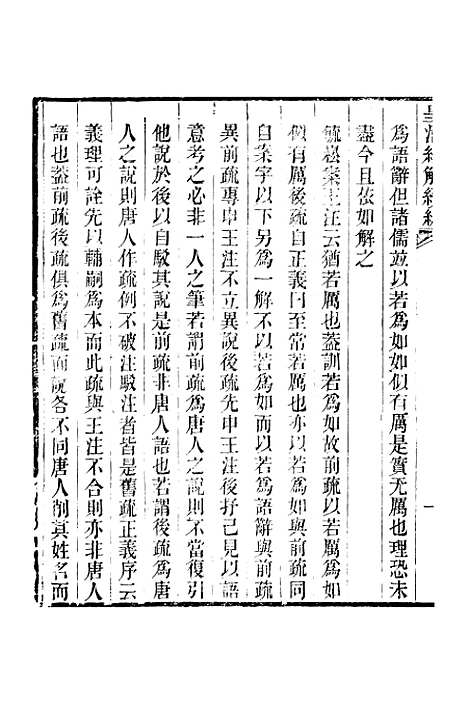 皇清經解續編
為語辭但諸儒並以若為如如似有厲是實无厲也理恐未
盡今且依如解之
毓崧案王注云猶若厲也蓋訓若為如故前疏以若厲為如
似有厲後疏自正義曰至常若厲也亦以若為如與前疏同
自案字以下另為一解不以若為如而以若為語辭與前疏
異前疏專申王注不立異說後疏先申王注後抒己見以語
意考之必非一人之筆若謂前疏為唐人之說則不當復引
他說於後以自駁其說是前疏非唐人語也若謂後疏為唐
人之說則唐人作疏例不破注駁注者皆是舊疏正義序云
義理可詮先以輔嗣為本而此疏與王注不合則亦非唐人
語也葢前疏後疏俱為舊疏而說各不同唐人削其姓名而